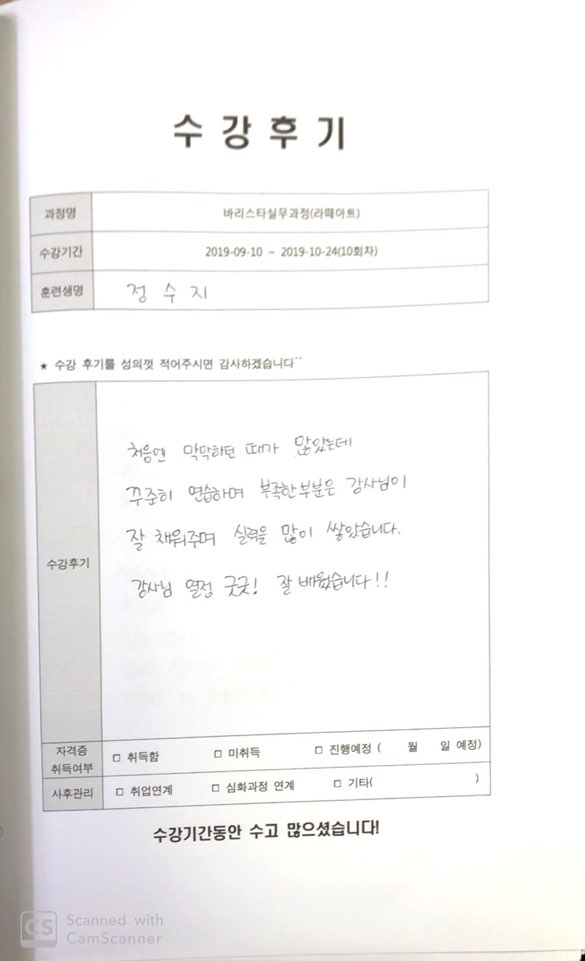 수강후기
과정명 바리스타실무과정(라떼아트)
수강기간 2019-09-10 ~ 2019-10-24(10회차)
훈련생명 정수지
★ 수강 후기를 성의껏 적어주시면 감사하겠습니다^^
처음엔 막막하던 때가 많았는데
꾸준히 연습하며 부족한 부분은 강사님이
수강후기
잘 채워주며 실력을 많이 쌓았습니다.
강사님 열정 굿굿! 잘 배웠습니다!!
자격증 취득여부 □ 취득함 □ 미취득 □ 진행예정 ( 월 일 예정)
사후관리 □ 취업연계 □ 심화과정 연계 □ 기타( )
수강기간동안 수고 많으셨습니다!
CS Scanned with
CamScanner